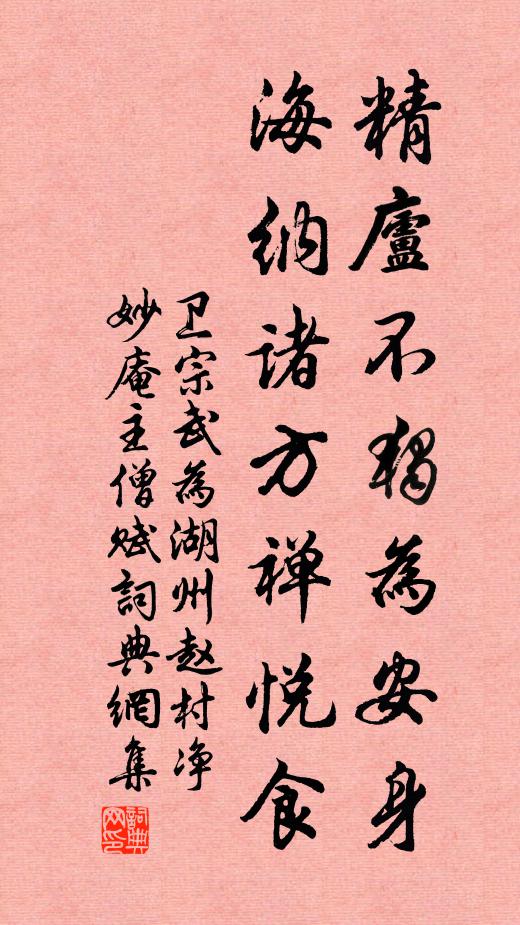 精廬不独為安身
海纳诸方禅悦食
卫宗武為湖州赵村净
妙庵主僧赋詞典網集
詞典
网印